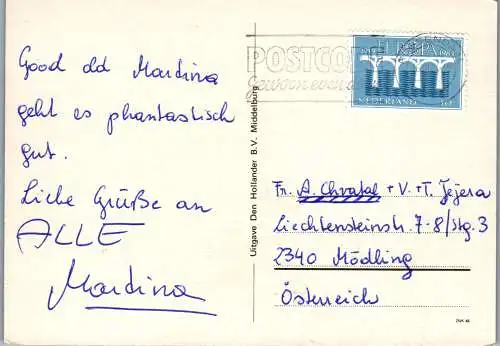 Good old Mardina
geht es phantastisch
gut.
Liebe Grüße an
ALLE
Mardina
Uitgave Den Hollander B.V. Middelburg
POSTCODE
Gewoon even
EUROPA
NEDERLAND
Fr. A. Chvatal + V. + T. Jejera
Liechtensteinstr. 7-8/Stg. 3
2340 Mödling
Österreich